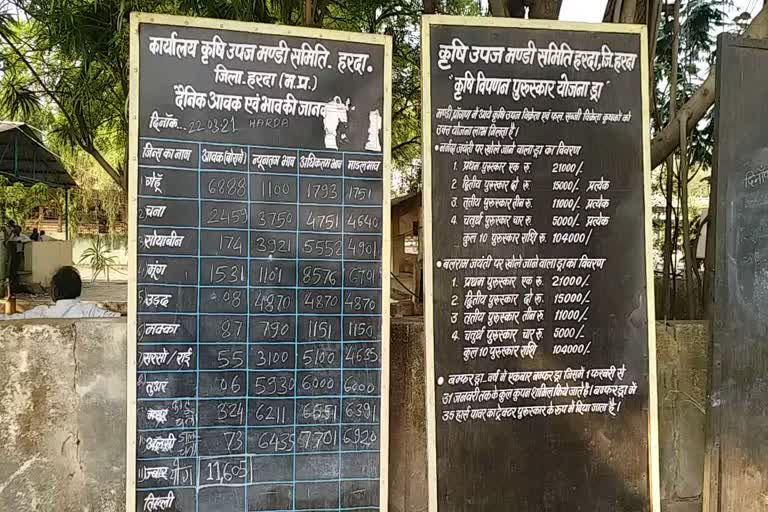 कार्यालय कृषि उपज मण्डी समिति- हरदा.
जिला. हरदा (म.प्र.)
दैनिक आवक एवं भाव की जानकारी
दिनांक... 22-03-21 HARDA
जिन्स का नाम आवक(बोराने) न्यूनतम भाव अधिकतम भाव माडल भाव
गेहूँ 6888 1100 1793 1751
चना 2459 3750 4751 4640
सोयाबीन 174 3921 5552 4901
मूंग 1531 1101 8576 6701
उड़द 08 4870 4870 4870
मक्का 87 790 1151 1150
सरसो / राई 55 3100 5100 4635
तुअर 06 5930 6000 6000
324 6211 6551 6391
73 6435 7701 6920
ज्वार योग 11,605
तिल्ली
कृषि उपज मण्डी समिति हरदा, जि. हरदा
कृषि विपणन पुरूस्कार योजना ड्रा
मण्डी प्रांगण में आये कृषि उपज विक्रेता एवं फल, सब्जी विक्रेता कृषको को
उक्त योजना लाभ मिलता है।
जयंती पर खोले जाने वाला ड्रा का विवरण
1. प्रथम पुरूस्कार एक रू. 21000/-
2. द्वितीय पुरूस्कार दो रू. 15000/- प्रत्येक
3. तृतीय पुरूस्कार तीन रू. 11000/- प्रत्येक
4. चतुर्थ पुरूस्कार चार रू. 5000/- प्रत्येक
कुल 10 पुरूस्कार राशि रू. 104000/-
• बलराम जयंती पर खोले जाने वाला ड्रा का विवरण
1. प्रथम पुरूस्कार एक रू. 21000/-
2. द्वितीय पुरूस्कार दो रू. 15000/-
3. तृतीय पुरूस्कार तीन रू. 11000/-
4. चतुर्थ पुरूस्कार चार रू. 5000/-
कुल 10 पुरूस्कार राशि 104000/-
• बम्फर ड्रा.. वर्ष में एकबार बम्फर ड्रा जिसमे 1 फरवरी से
31 जनवरी तक के कुल कुपन शामिल किये जाते है। बम्फर ड्रा में
35 हार्स पावर का ट्रेक्टर पुरूस्कार के रूप में दिया जाता है।